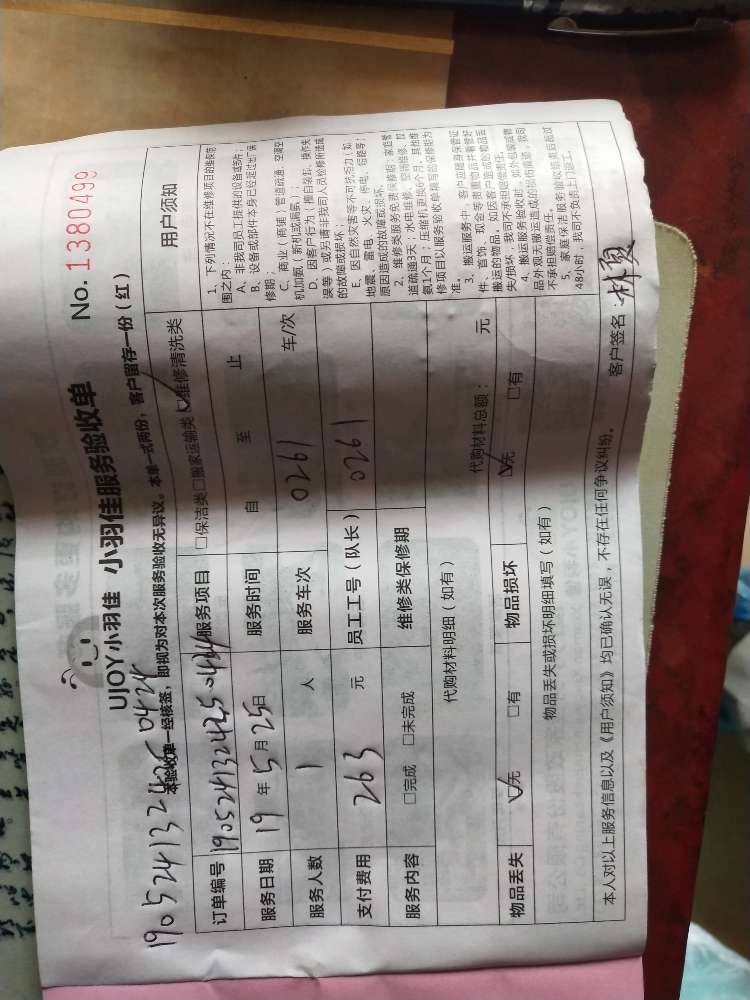 UJOY小羽佳 小羽佳服务验收单 No. 1380499
本验收单一经核签，即视为对本次服务验收无异议。本单一式两份，客户留存一份（红）
190524132425 0424
订单编号 190524132425 0424 服务项目 □保洁类 □搬家运输类 ☑维修清洗类
服务日期 19 年 5 月 25 日 服务时间 自 至 止
服务人数 1 人 服务车次 0261 车/次
支付费用 263 元 员工工号（队长） 0261
服务内容 □完成 □未完成 维修类保修期
代购材料明细（如有） 代购材料总额： 元
物品丢失 ☑无 □有 物品损坏 ☑无 □有
物品丢失或损坏明细填写（如有）
用户须知
1、下列情况不在维修项目的维保范
围之内：
A、非我司员工提供的设备或部件；
B、设备或部件本身已经超过出厂保
修期；
C、商业（商铺）管道疏通、空调空
机加氨（新机或漏氨）；
D、因客户行为（擅自装卸、操作失
误等）或另请非我司人员检修所造成
的故障或损坏；
E、因自然灾害等不可抗拒力（如
地震、雷电、火灾、停电、短路等）
原因造成的故障或损坏。
2、维修类服务免费保修期：家庭管
道疏通3天；水电维修、空调维修、拉
氨1个月；压缩机更换6个月，其他维
修项目以服务验收单填写的保修期为
准。
3、搬运服务中，客户应随身保管证
件、首饰、现金等贵重物品并看管好
搬运的物品，如因客户造成的物品丢
失/损坏，我司不承担赔偿责任。
4、搬运服务验收时，如外包装或物
品外观无搬运造成的损伤痕迹，我司
不承担赔偿责任。
5、家庭保洁服务验收结束后超过
48小时，我司不负责上门返工。
本人对以上服务信息以及《用户须知》均已确认无误，不存在任何争议纠纷。 客户签名：